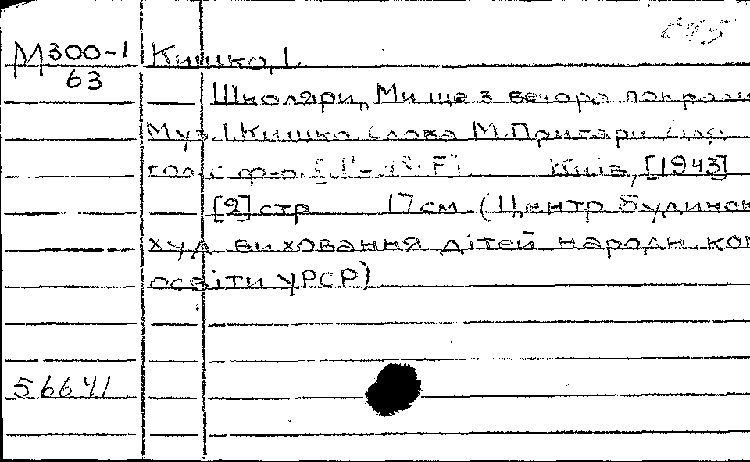 645
М300-1 Кишко, І.
63
Школяри, Ми ще з вечора
Муз. І. Кишко Слова М. Пригари
гол. с ф-п. Київ, [1943]
[2] стр 17 см (Центр Будинок
худ виховання дітей народн. ком
освіти УРСР)
56641